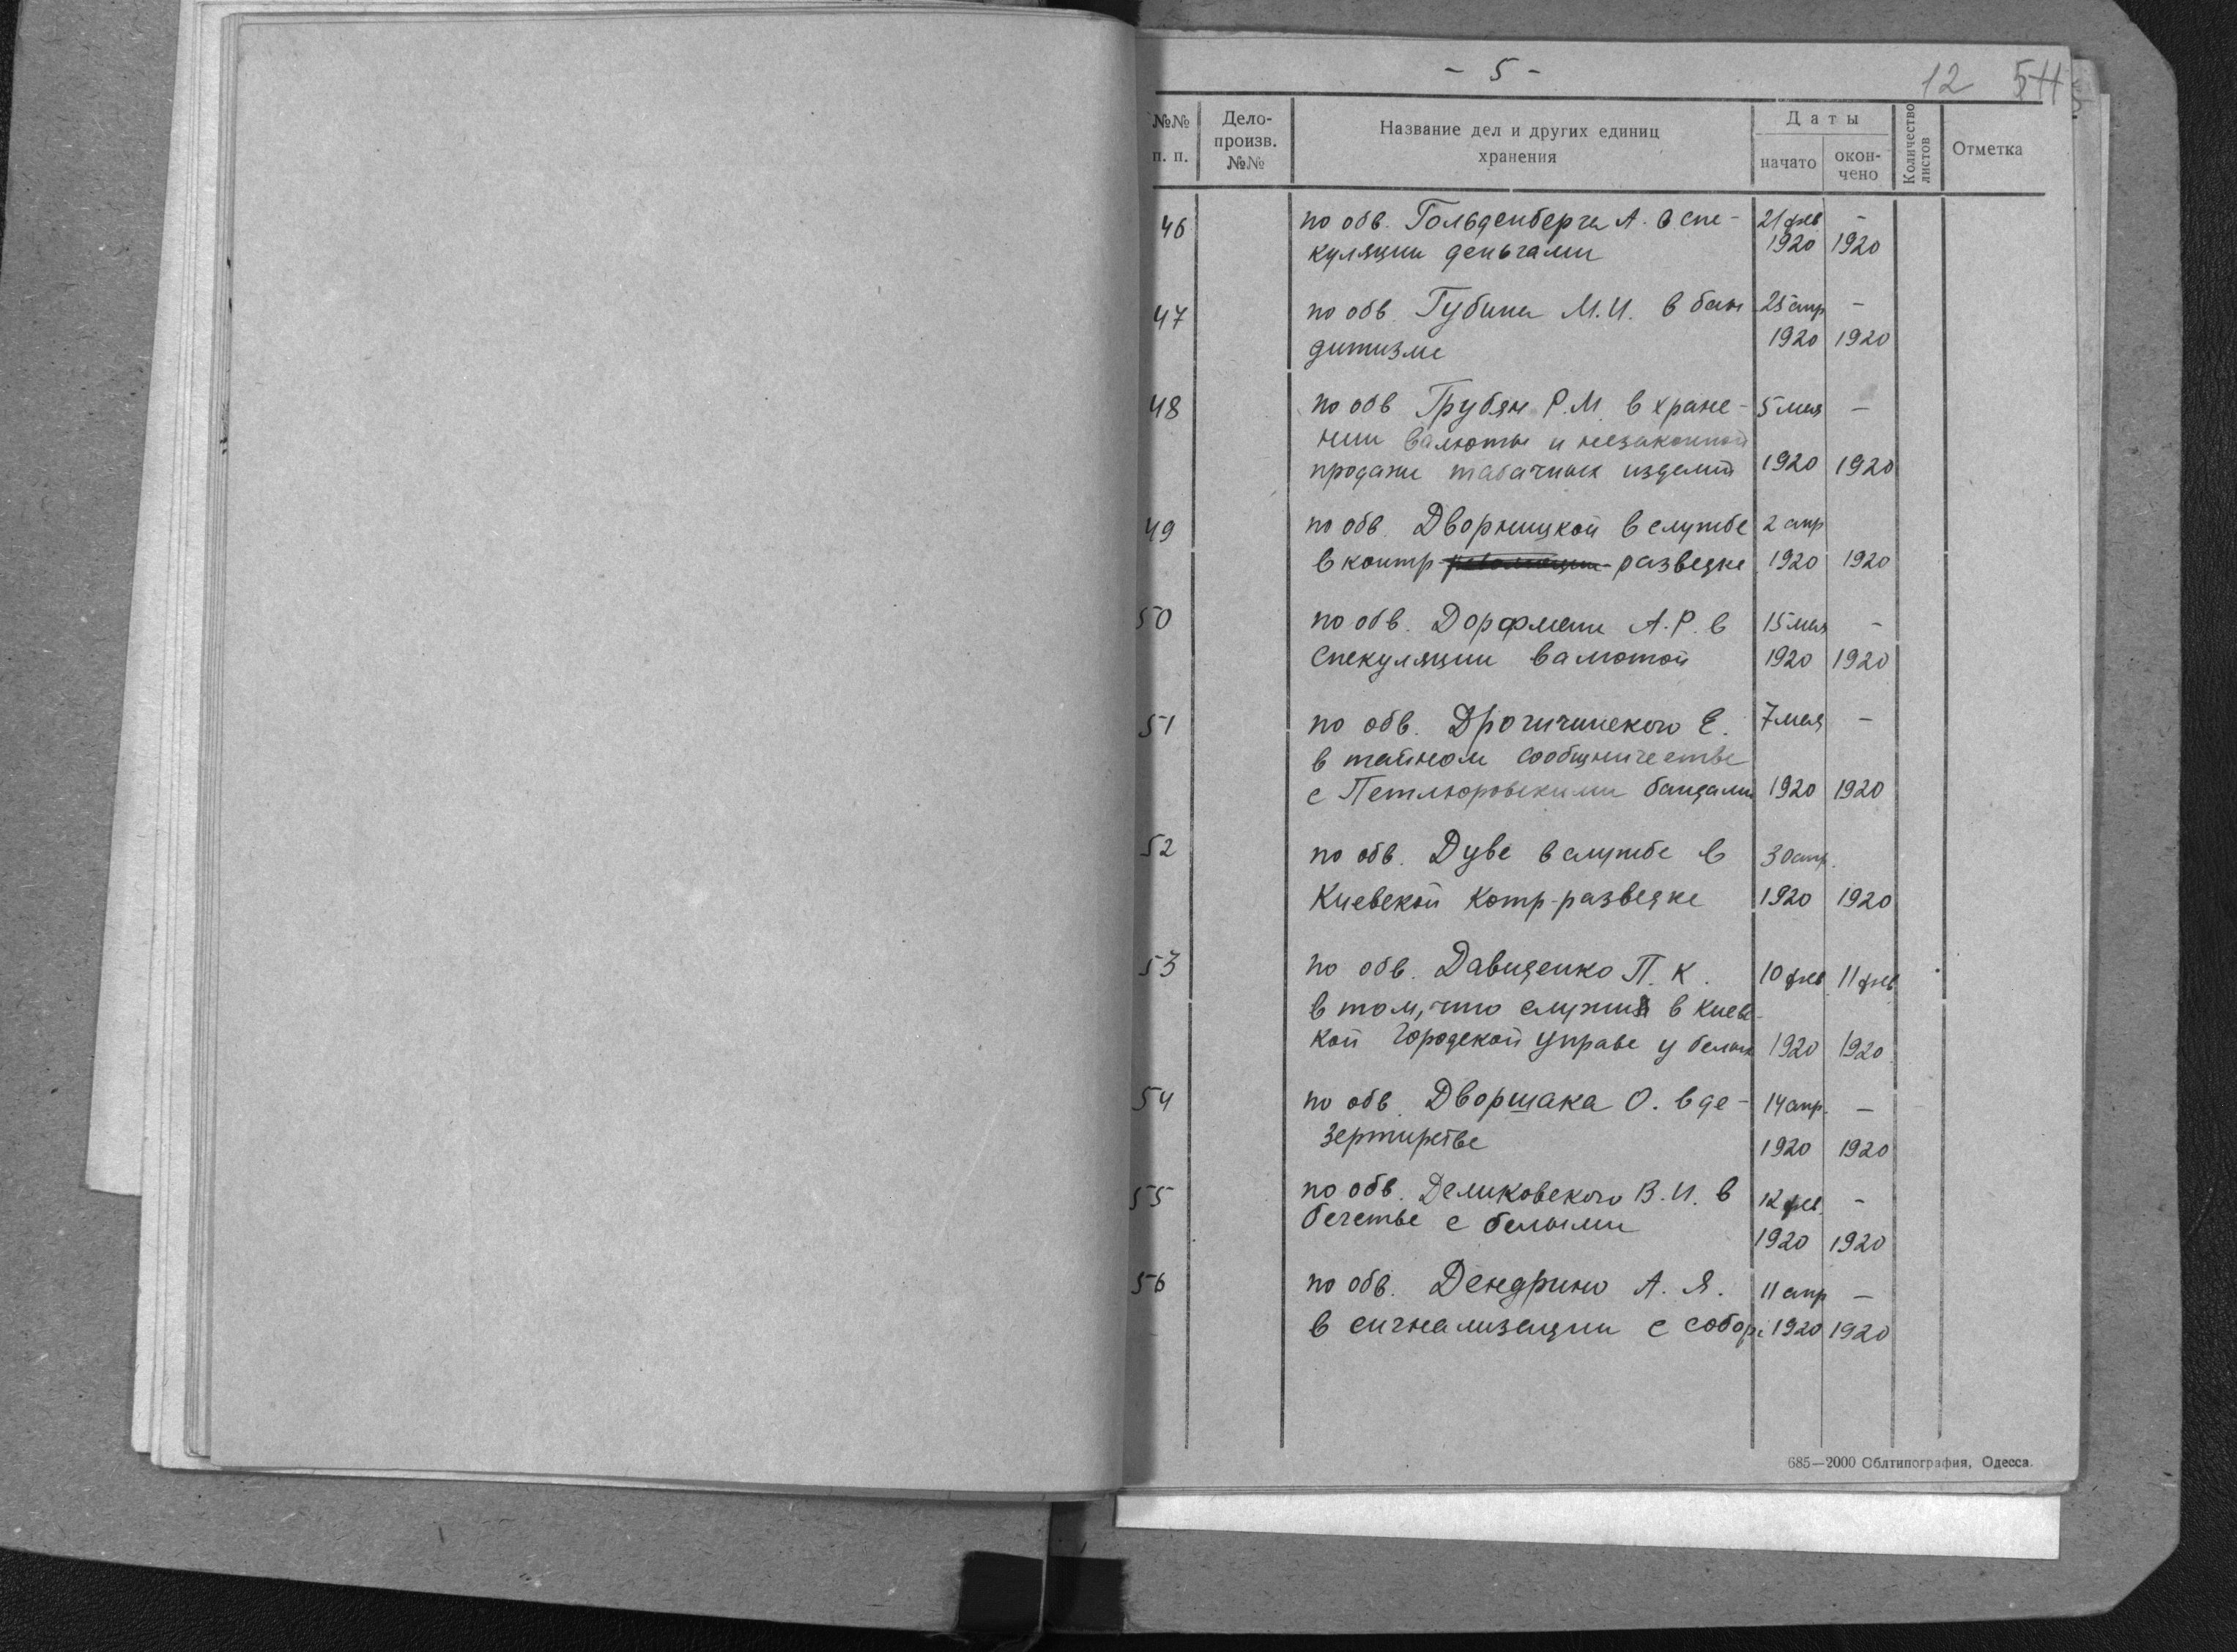 - 5 -
12
№№ п. п.
Дело-произв. №№
Название дел и других единиц хранения
Даты
начато
окон-чено
Количество листов
Отметка
46 по обв. Гольденберга А. в спе- 21 фев -
куляции деньгами 1920 1920
47 по обв. Губина М.И. в бан 25 апр -
дитизме 1920 1920
48 по обв Грубян Р.М. в хране- 5 мая -
нии валюты и незаконной
продажи табачных изделий 1920 1920
49 по обв. Дворницкой в службе 2 апр
в контр-разведке 1920 1920
50 по обв. Дорфман А.Р. в 15 мая -
спекуляции валютой 1920 1920
51 по обв. Дрогичинского Е. 7 мая -
в тайном сообщничестве
с Петлюровскими бандами 1920 1920
52 по обв. Дуве в службе в 30 апр.
Киевской котр-разведке 1920 1920
53 по обв. Давиденко П. К. 10 фев 11 фев
в том, что служил в Киевс-
кой городской управе у белых 1920 1920
54 по обв. Дворщака О. в де- 14 апр. -
зертирстве 1920 1920
55 по обв. Деликовского В.И. в 12 фев. -
бегстве с белыми 1920 1920
56 по обв. Дендрино А. Я. 11 апр -
в сигнализации с собор. 1920 1920
685—2000 Облтипография, Одесса.